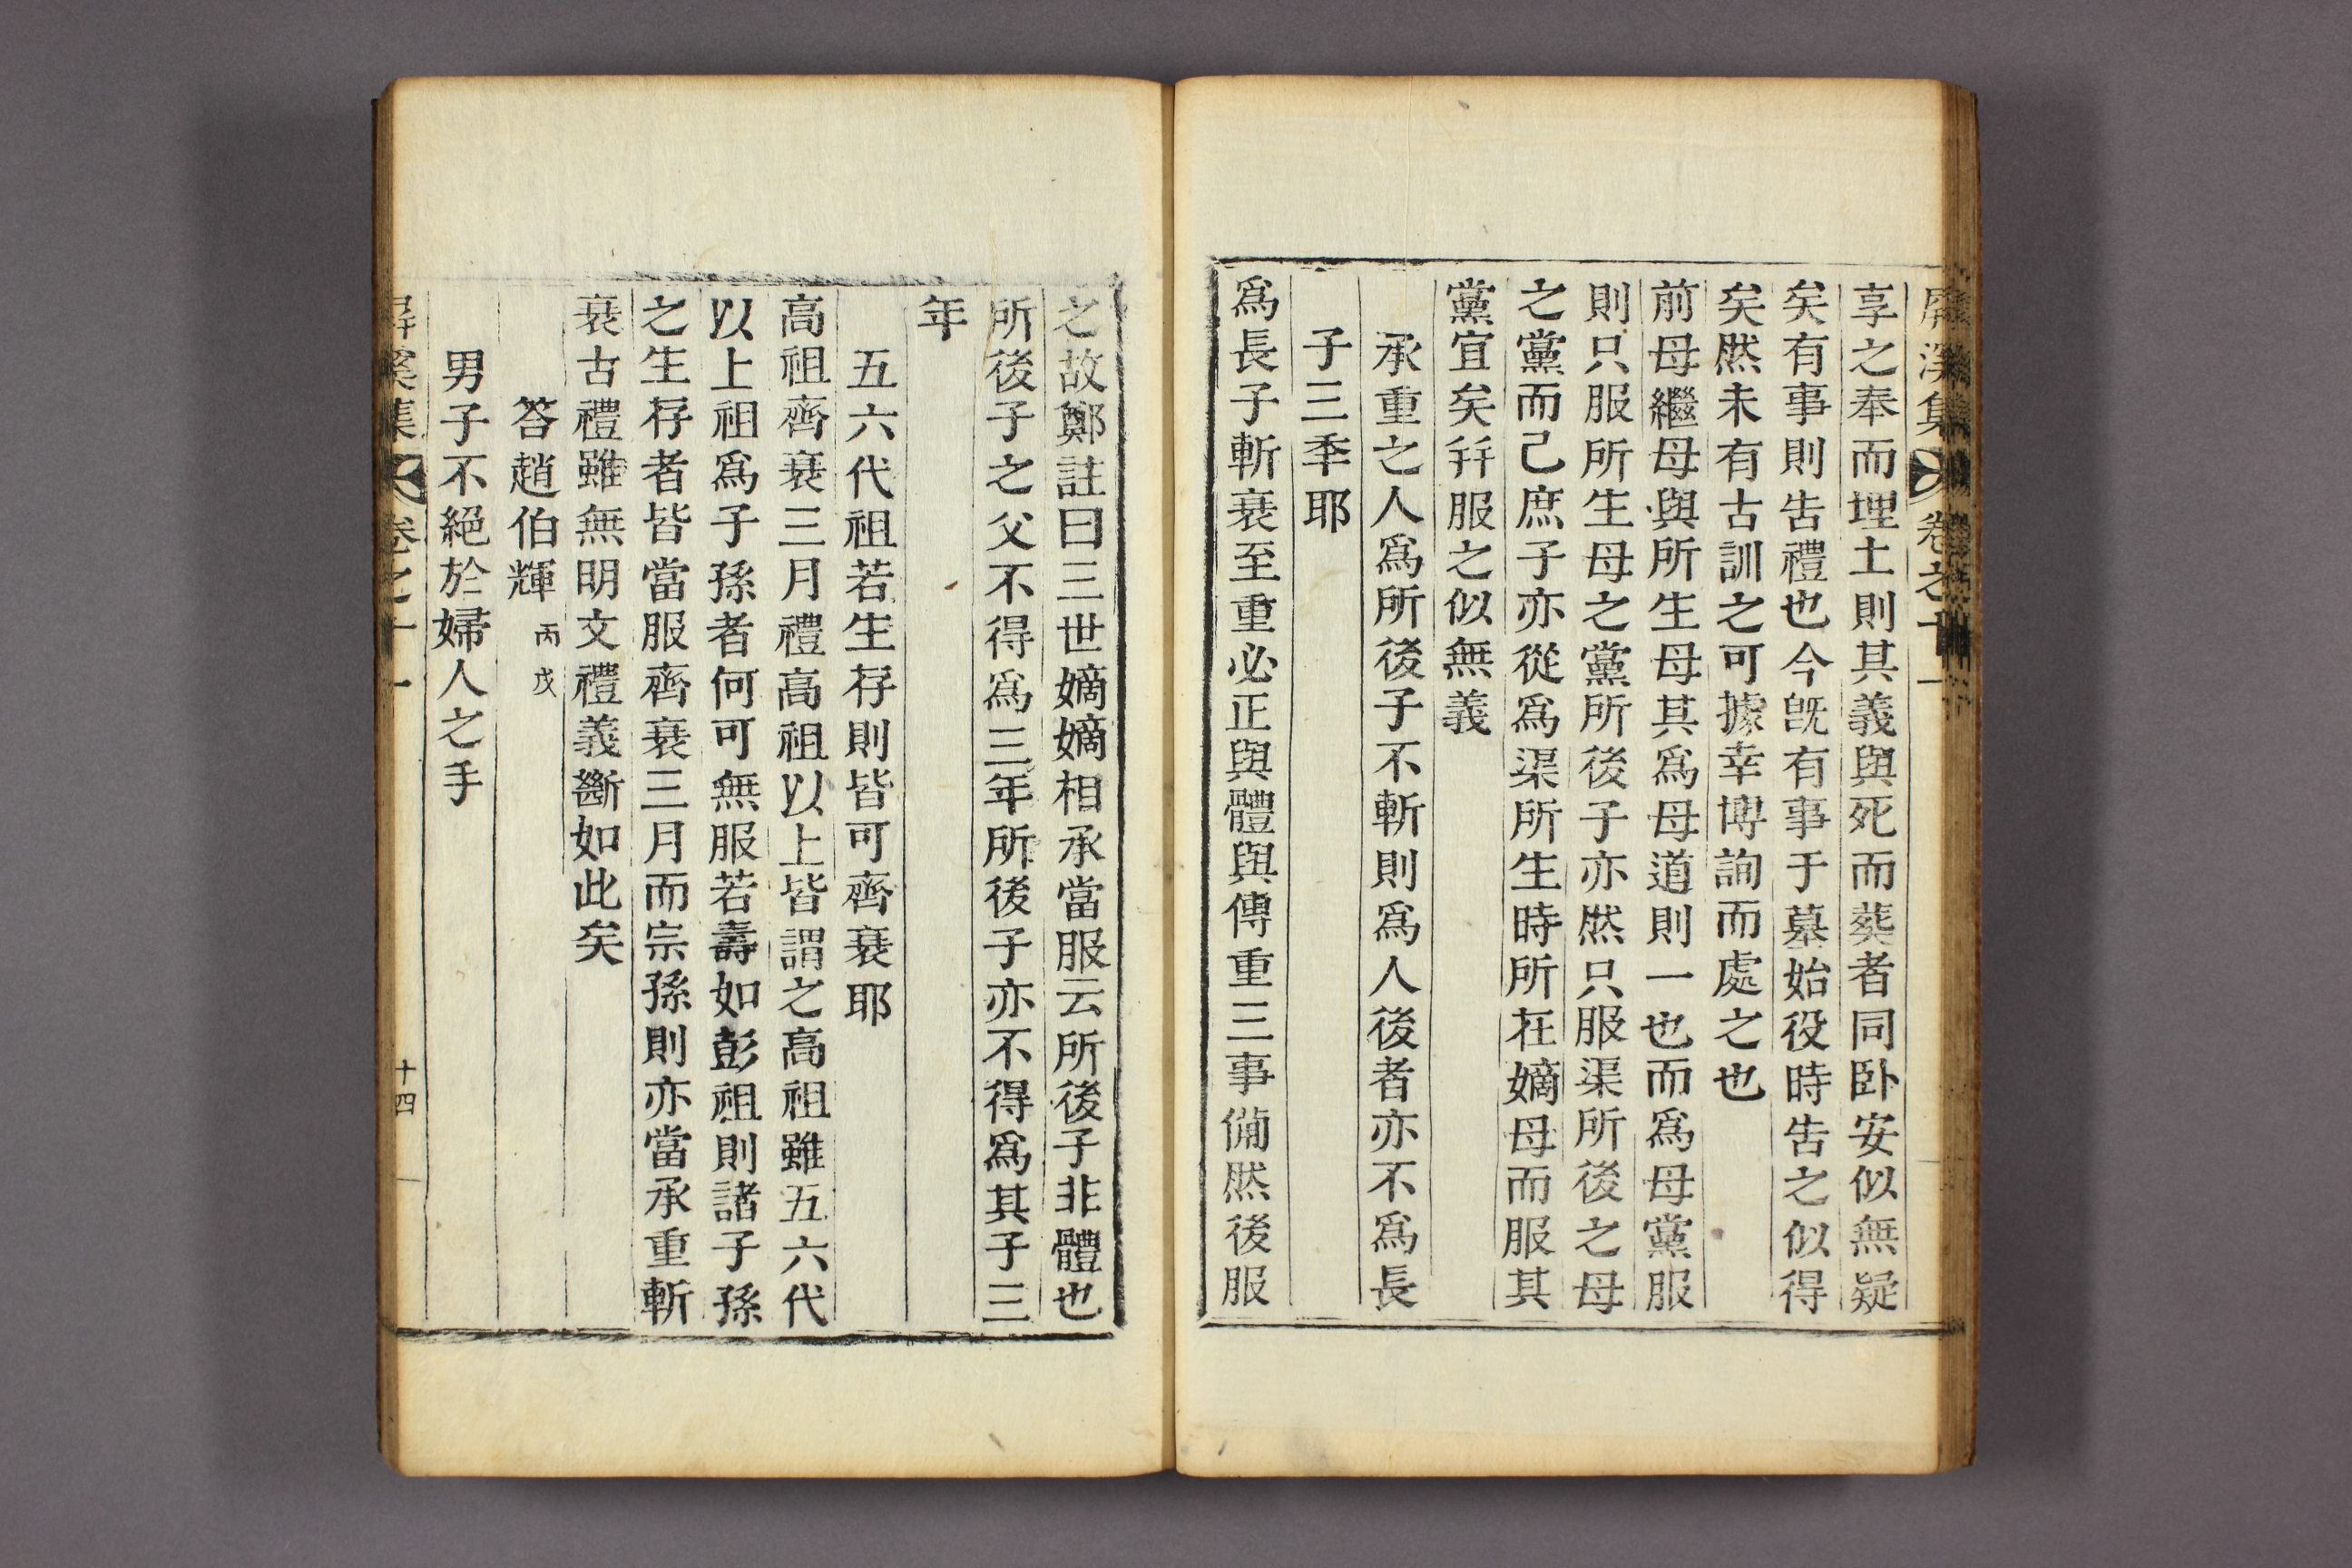 屛溪集 卷之十一
享之奉而埋土則其義與死而葬者同卧安似無疑
矣有事則告禮也今旣有事于墓始役時告之似得
矣然未有古訓之可據幸博詢而處之也
前母繼母與所生母其爲母道則一也而爲母黨服
則只服所生母之黨所後子亦然只服渠所後之母
之黨而已庶子亦從爲渠所生時所在嫡母而服其
黨宜矣幷服之似無義
承重之人爲所後子不斬則爲人後者亦不爲長
子三秊耶
爲長子斬衰至重必正與體與傳重三事備然後服
之故鄭註曰三世嫡嫡相承當服云所後子非體也
所後子之父不得爲三年所後子亦不得爲其子三
年
五六代祖若生存則皆可齊衰耶
高祖齊衰三月禮高祖以上皆謂之高祖雖五六代
以上祖爲子孫者何可無服若壽如彭祖則諸子孫
之生存者皆當服齊衰三月而宗孫則亦當承重斬
衰古禮雖無明文禮義斷如此矣
答趙伯輝 丙戌
男子不絕於婦人之手
屛溪集 卷之十一 十四